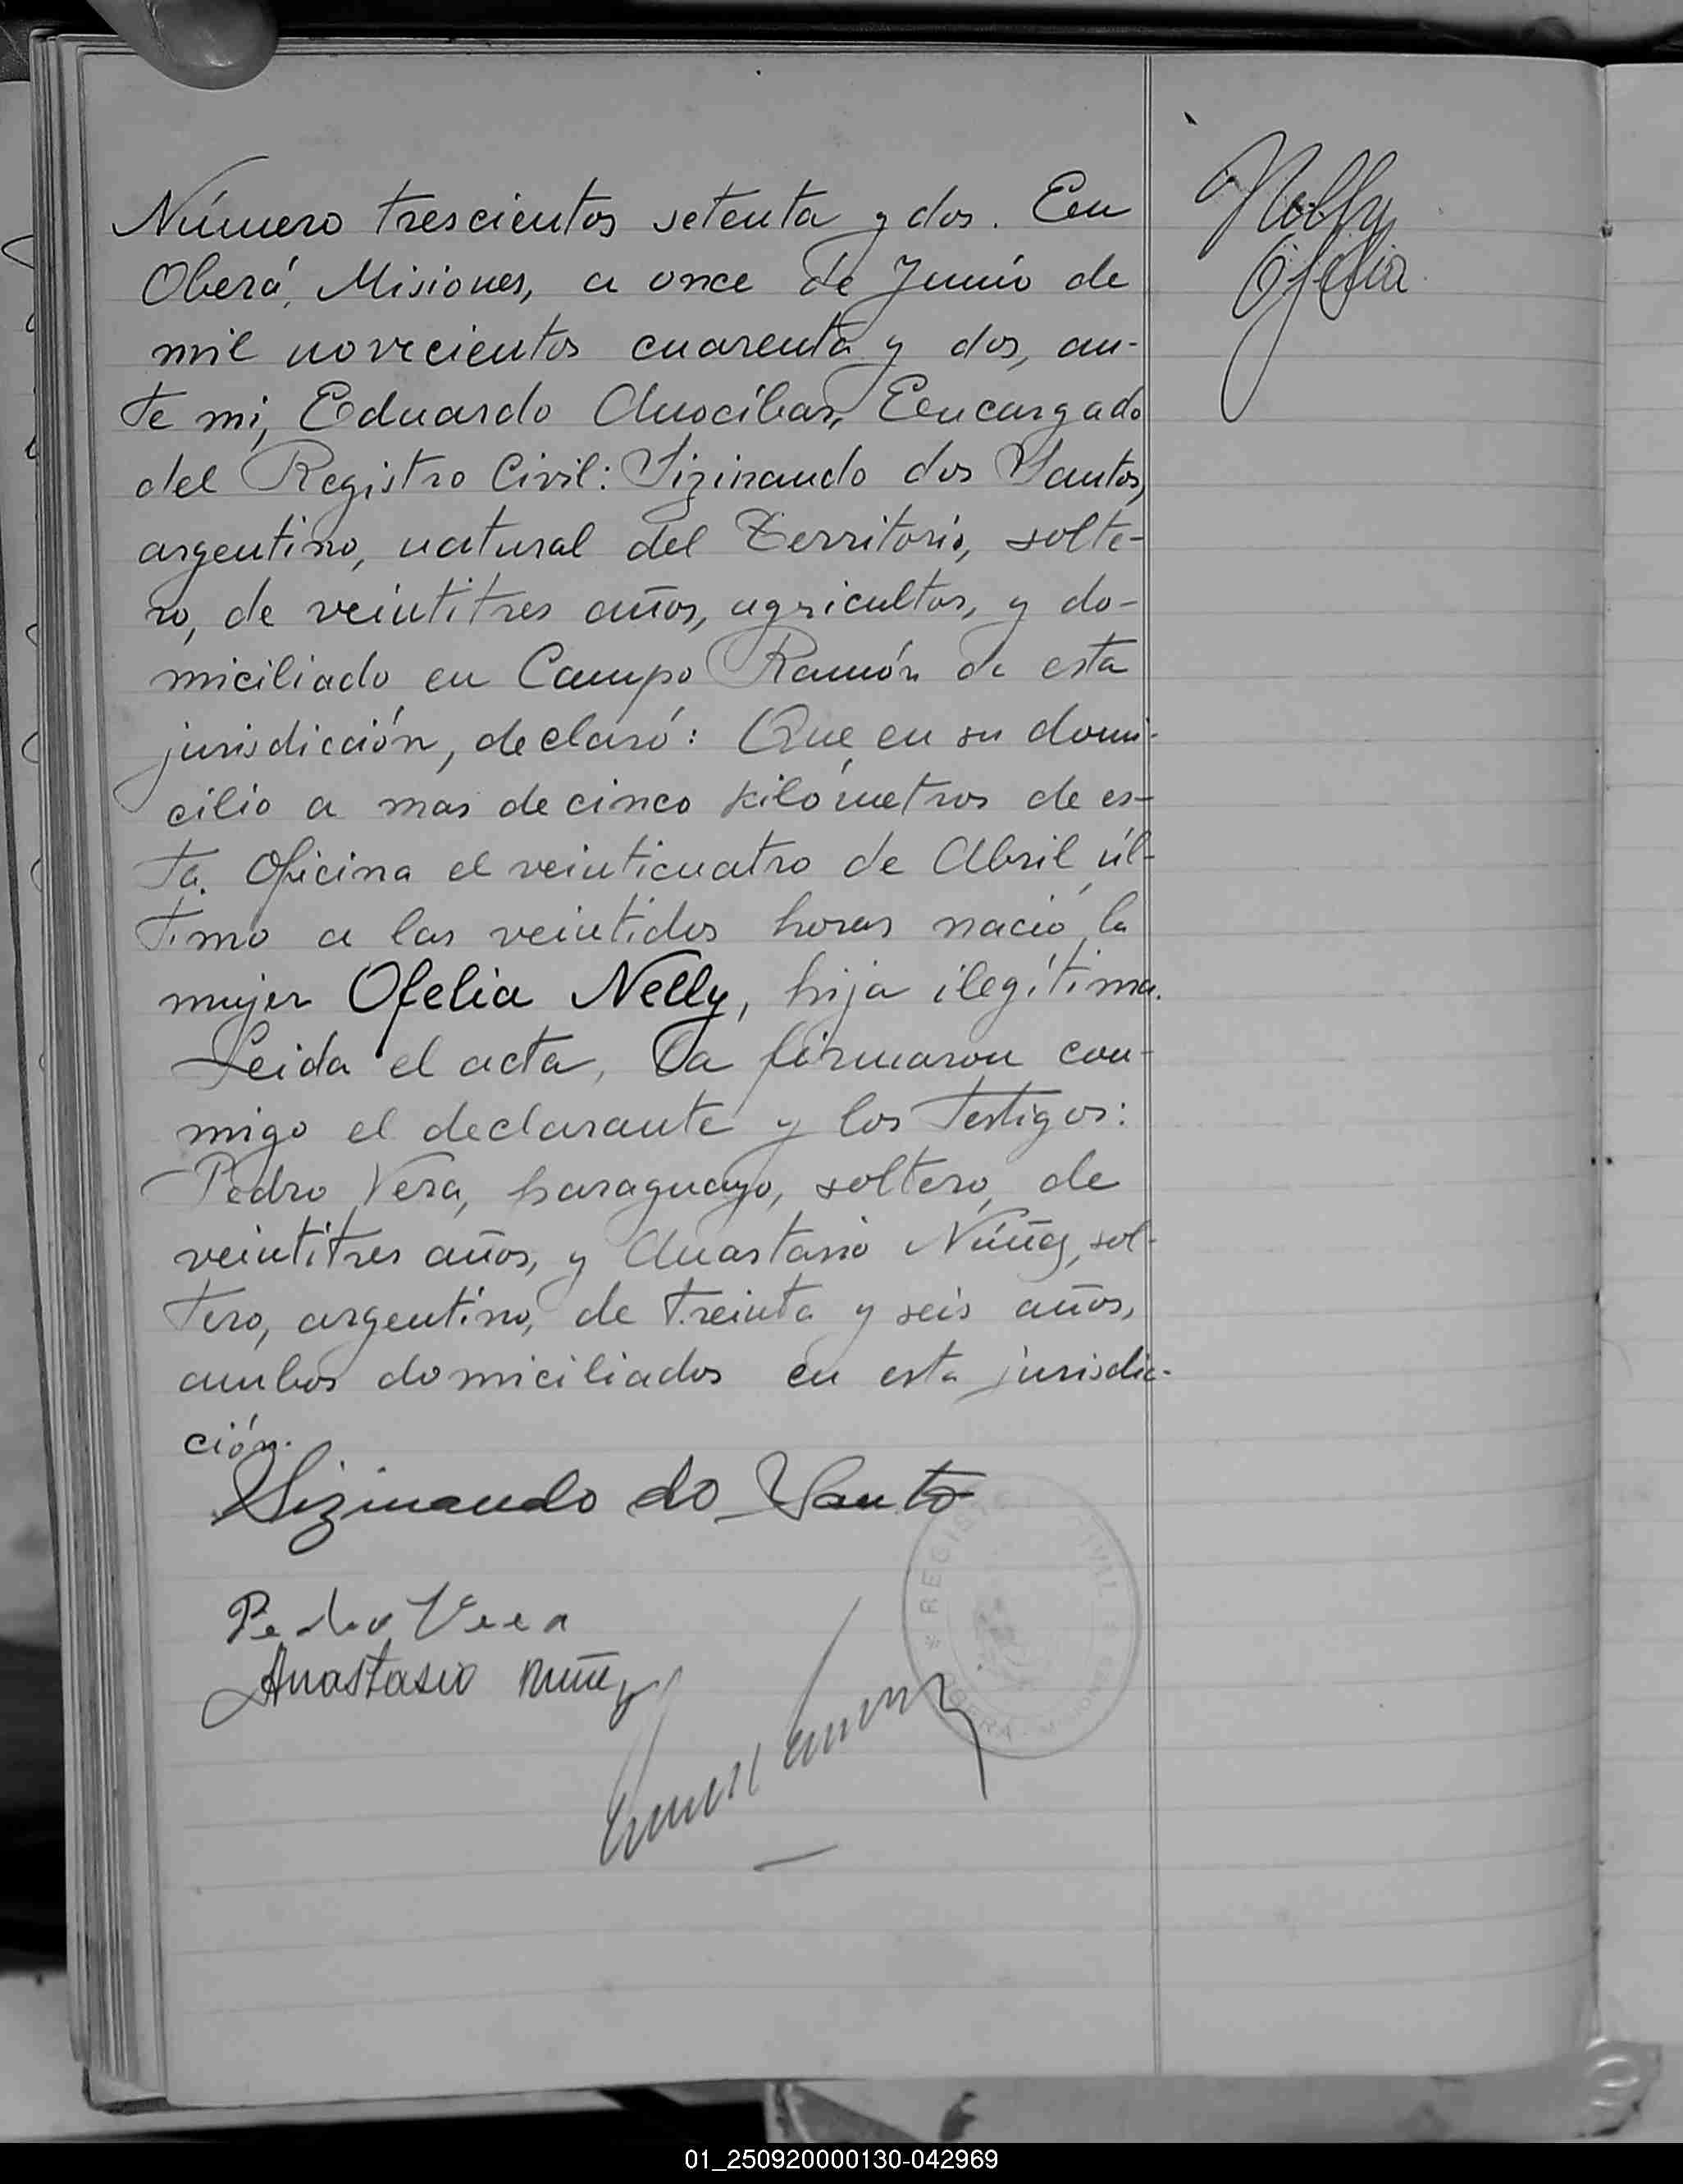 Número trescientos setenta y dos. En
Oberá, Misiones, a once de Junio de
mil novecientos cuarenta y dos, an-
te mi, Eduardo Anocíbar, Encargado
del Registro Civil: Sizinando dos Santos,
argentino, natural del Territorio, solte-
ro, de veintitres años, agricultor, y do-
miciliado en Campo Ramón de esta
jurisdicción, declaró: Que en su domi-
cilio a mas de cinco kilómetros de es-
ta Oficina el veinticuatro de Abril úl-
timo a las veintidos horas nació la
mujer Ofelia Nelly, hija ilegítima.
Leida el acta, la firmaron con-
migo el declarante y los testigos:
Pedro Vera, paraguayo, soltero, de
veintitres años, y Anastasio Núñez, sol-
tero, argentino, de treinta y seis años,
ambos domiciliados en esta jurisdic-
ción.
Sizinando do Santo
Pedro Vera
Anastasio Nuñez
Nelly
Ofelia
REGISTRO CIVIL
OBERA - MISIONES
01_250920000130-042969